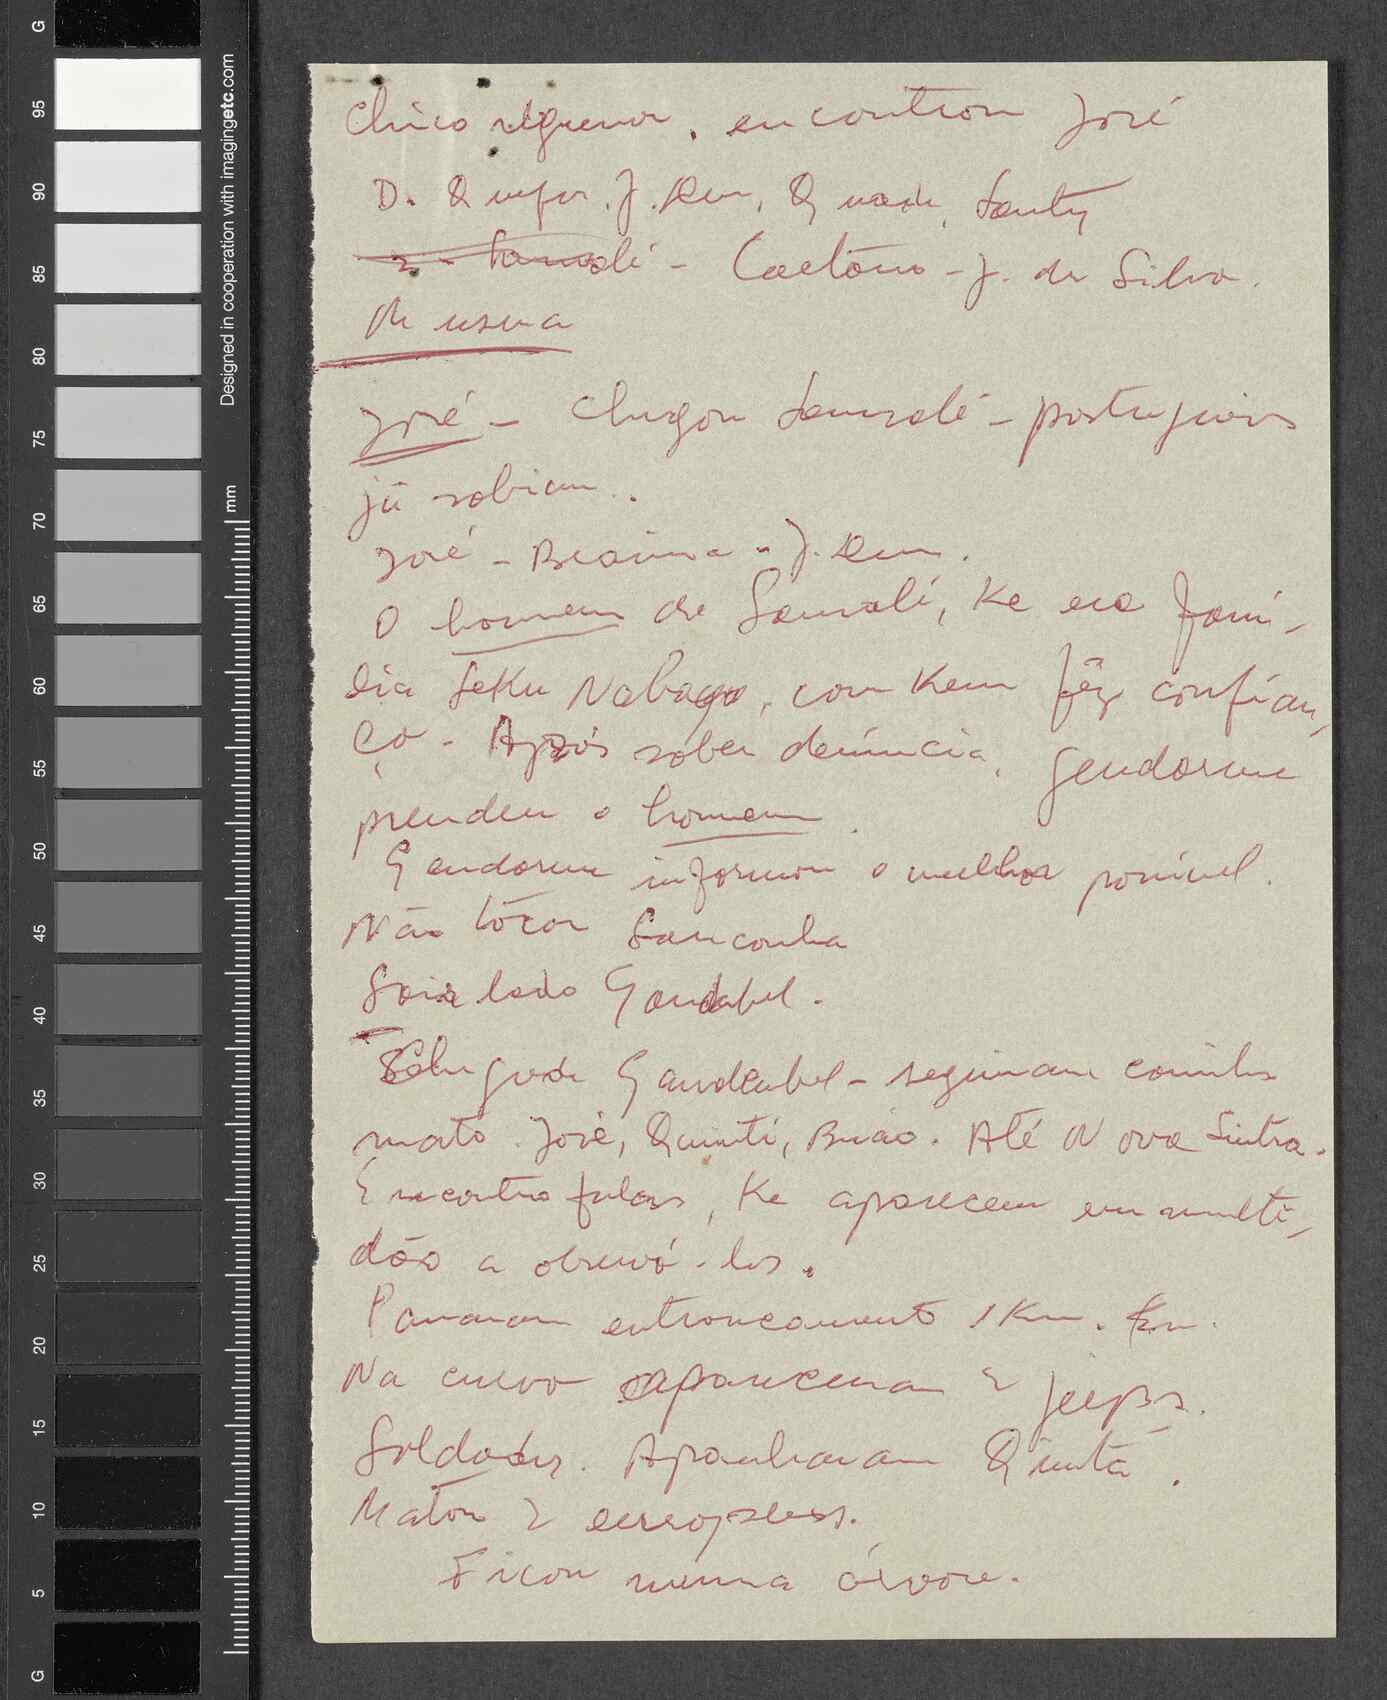 Chico regressou, encontrou José
D. Quefor. J. Dem, Quade, Santy
2 - Sansalé - Caetano - J. da Silva.
José - Chegou Sansalé - portugueses
já sabiam.
José - Biaima - J. Dem.
O homem de Sansalé, ke era famí-
lia Seku Nabago, com kem fêz confian-
ça. Após saber denúncia, Gendarme
prendeu o homem.
Gendarme informou o melhor possível.
Não tocar Sanconha
Sair lado Gandabel.
Chegada Gandembel - seguiram caminho
mato. José, Quinti, Buiao. Até Nova Sintra.
Encontro fulas, ke aparecem em multi-
dão a observá-los.
Pararam entroncamento 1 Km.
Na curva apareceram 2 jeeps.
Soldados. Apanharam Quintá.
Matou 2 europeus.
Ficou numa árvore.
G
95
90
85
80
75
70
65
60
55
50
45
40
35
30
25
20
15
10
5
G
Designed in cooperation with imagingetc.com
mm